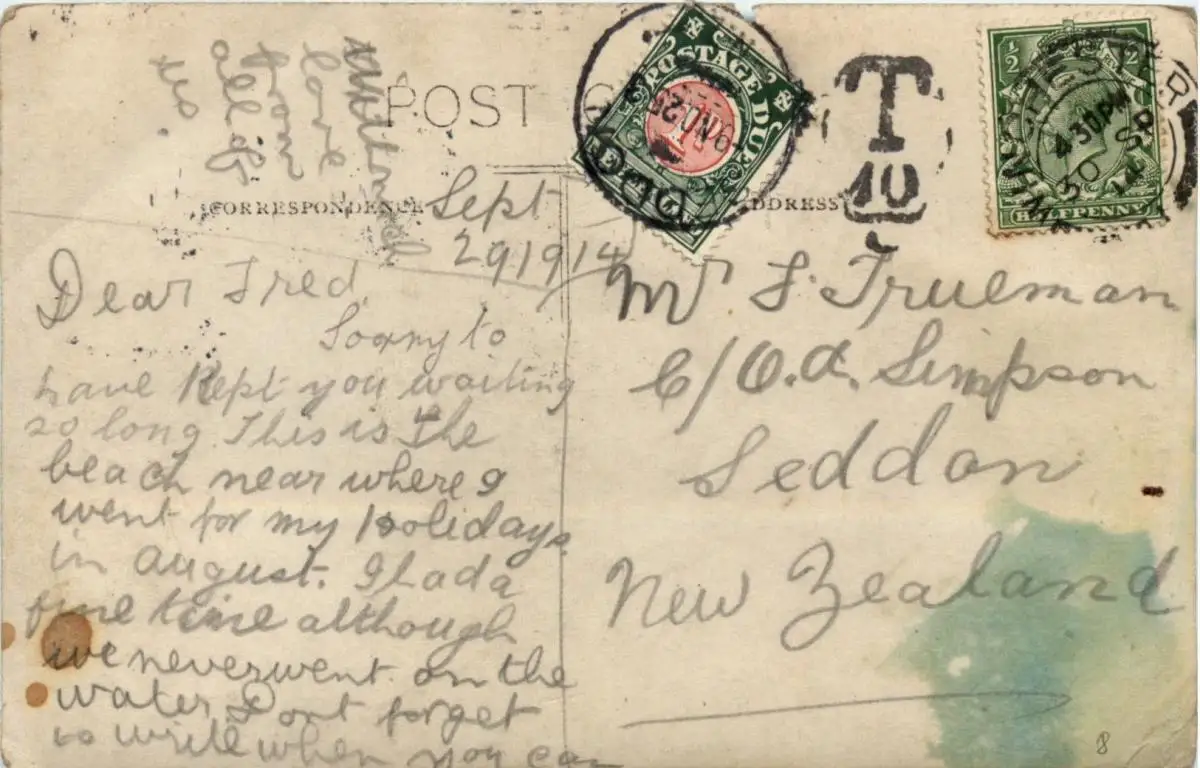 POST
CORRESPONDENCE
ADDRESS
Sept
29 1914
Dear Fred,
Sorry to
have Kept you waiting
so long This is the
beach near where I
went for my Holidays
in August. I had a
fine time although
we never went on the
water Dont forget
to write when you can
with much
love
from
all of
us.
POSTAGE DUE
NO 25
T
10
½ ½
HALFPENNY
MANCHESTER
4 30 PM
30 SP
14
Mr F. Trueman
C/O. A. Simpson
Seddon
New Zealand
8